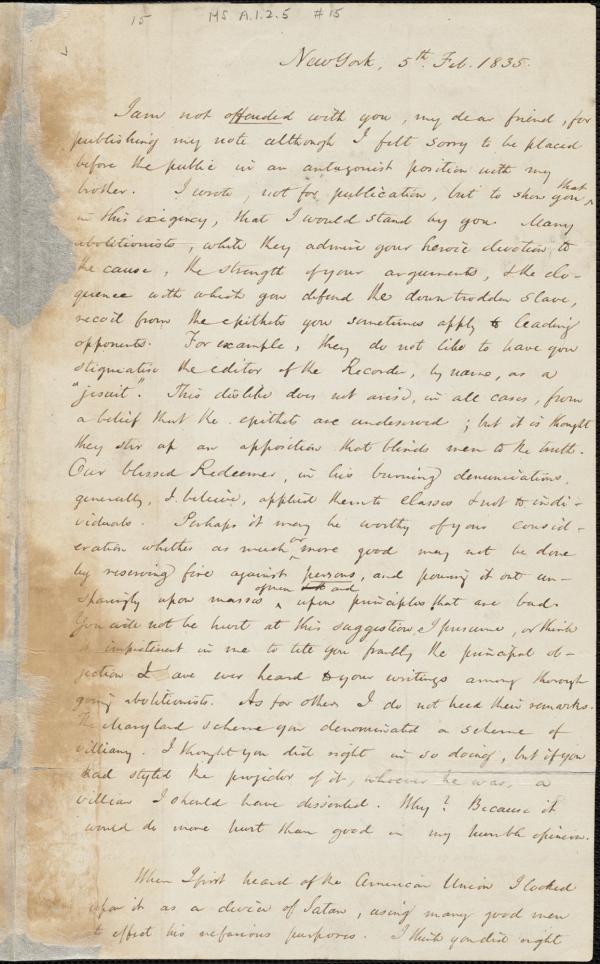 15 MS A.1.2.5 #15
New York, 5th Feb. 1835.
I am not offended with you, my dear friend, for
publishing my note although I felt sorry to be placed
before the public in an antagonist position with my
brother. I wrote, not for publication, but to show you that
in this exigency, that I would stand by you. Many
abolitionists, while they admire your heroic devotion to
the cause, the strength of your arguments, & the elo-
quence with which you defend the down trodden slave,
recoil from the epithets you sometimes apply to leading
opponents. For example, they do not like to have you
stigmatise the editor of the Recorder, by name, as a
"jesuit". This dislike does not arise, in all cases, from
a belief that the epithets are undeserved; but it is thought
they stir up an opposition that blinds men to the truth.
Our blessed Redeemer, in his burning denunciations,
generally, I believe, applied them to classes & not to indi-
viduals. Perhaps it may be worthy of your consid-
eration whether as much or more good may not be done
by reserving fire against persons, and pouring it out un-
sparingly upon masses of men and upon principles that are bad.
You will not be hurt at this suggestion I presume, or think
it impertinent in me to tell you frankly the principal ob-
jection I have ever heard to your writings among thorough
going abolitionists. As for others I do not heed their remarks.
The Maryland scheme you denominated a scheme of
villiany. I thought you did right in so doing, but if you
had styled the projector of it, whoever he was, a
villian I should have dissented. Why? Because it
would do more hurt than good in my humble opinion.
When I first heard of the American Union I looked
upon it as a device of Satan, using many good men
to effect his nefarious purposes. I think you did right